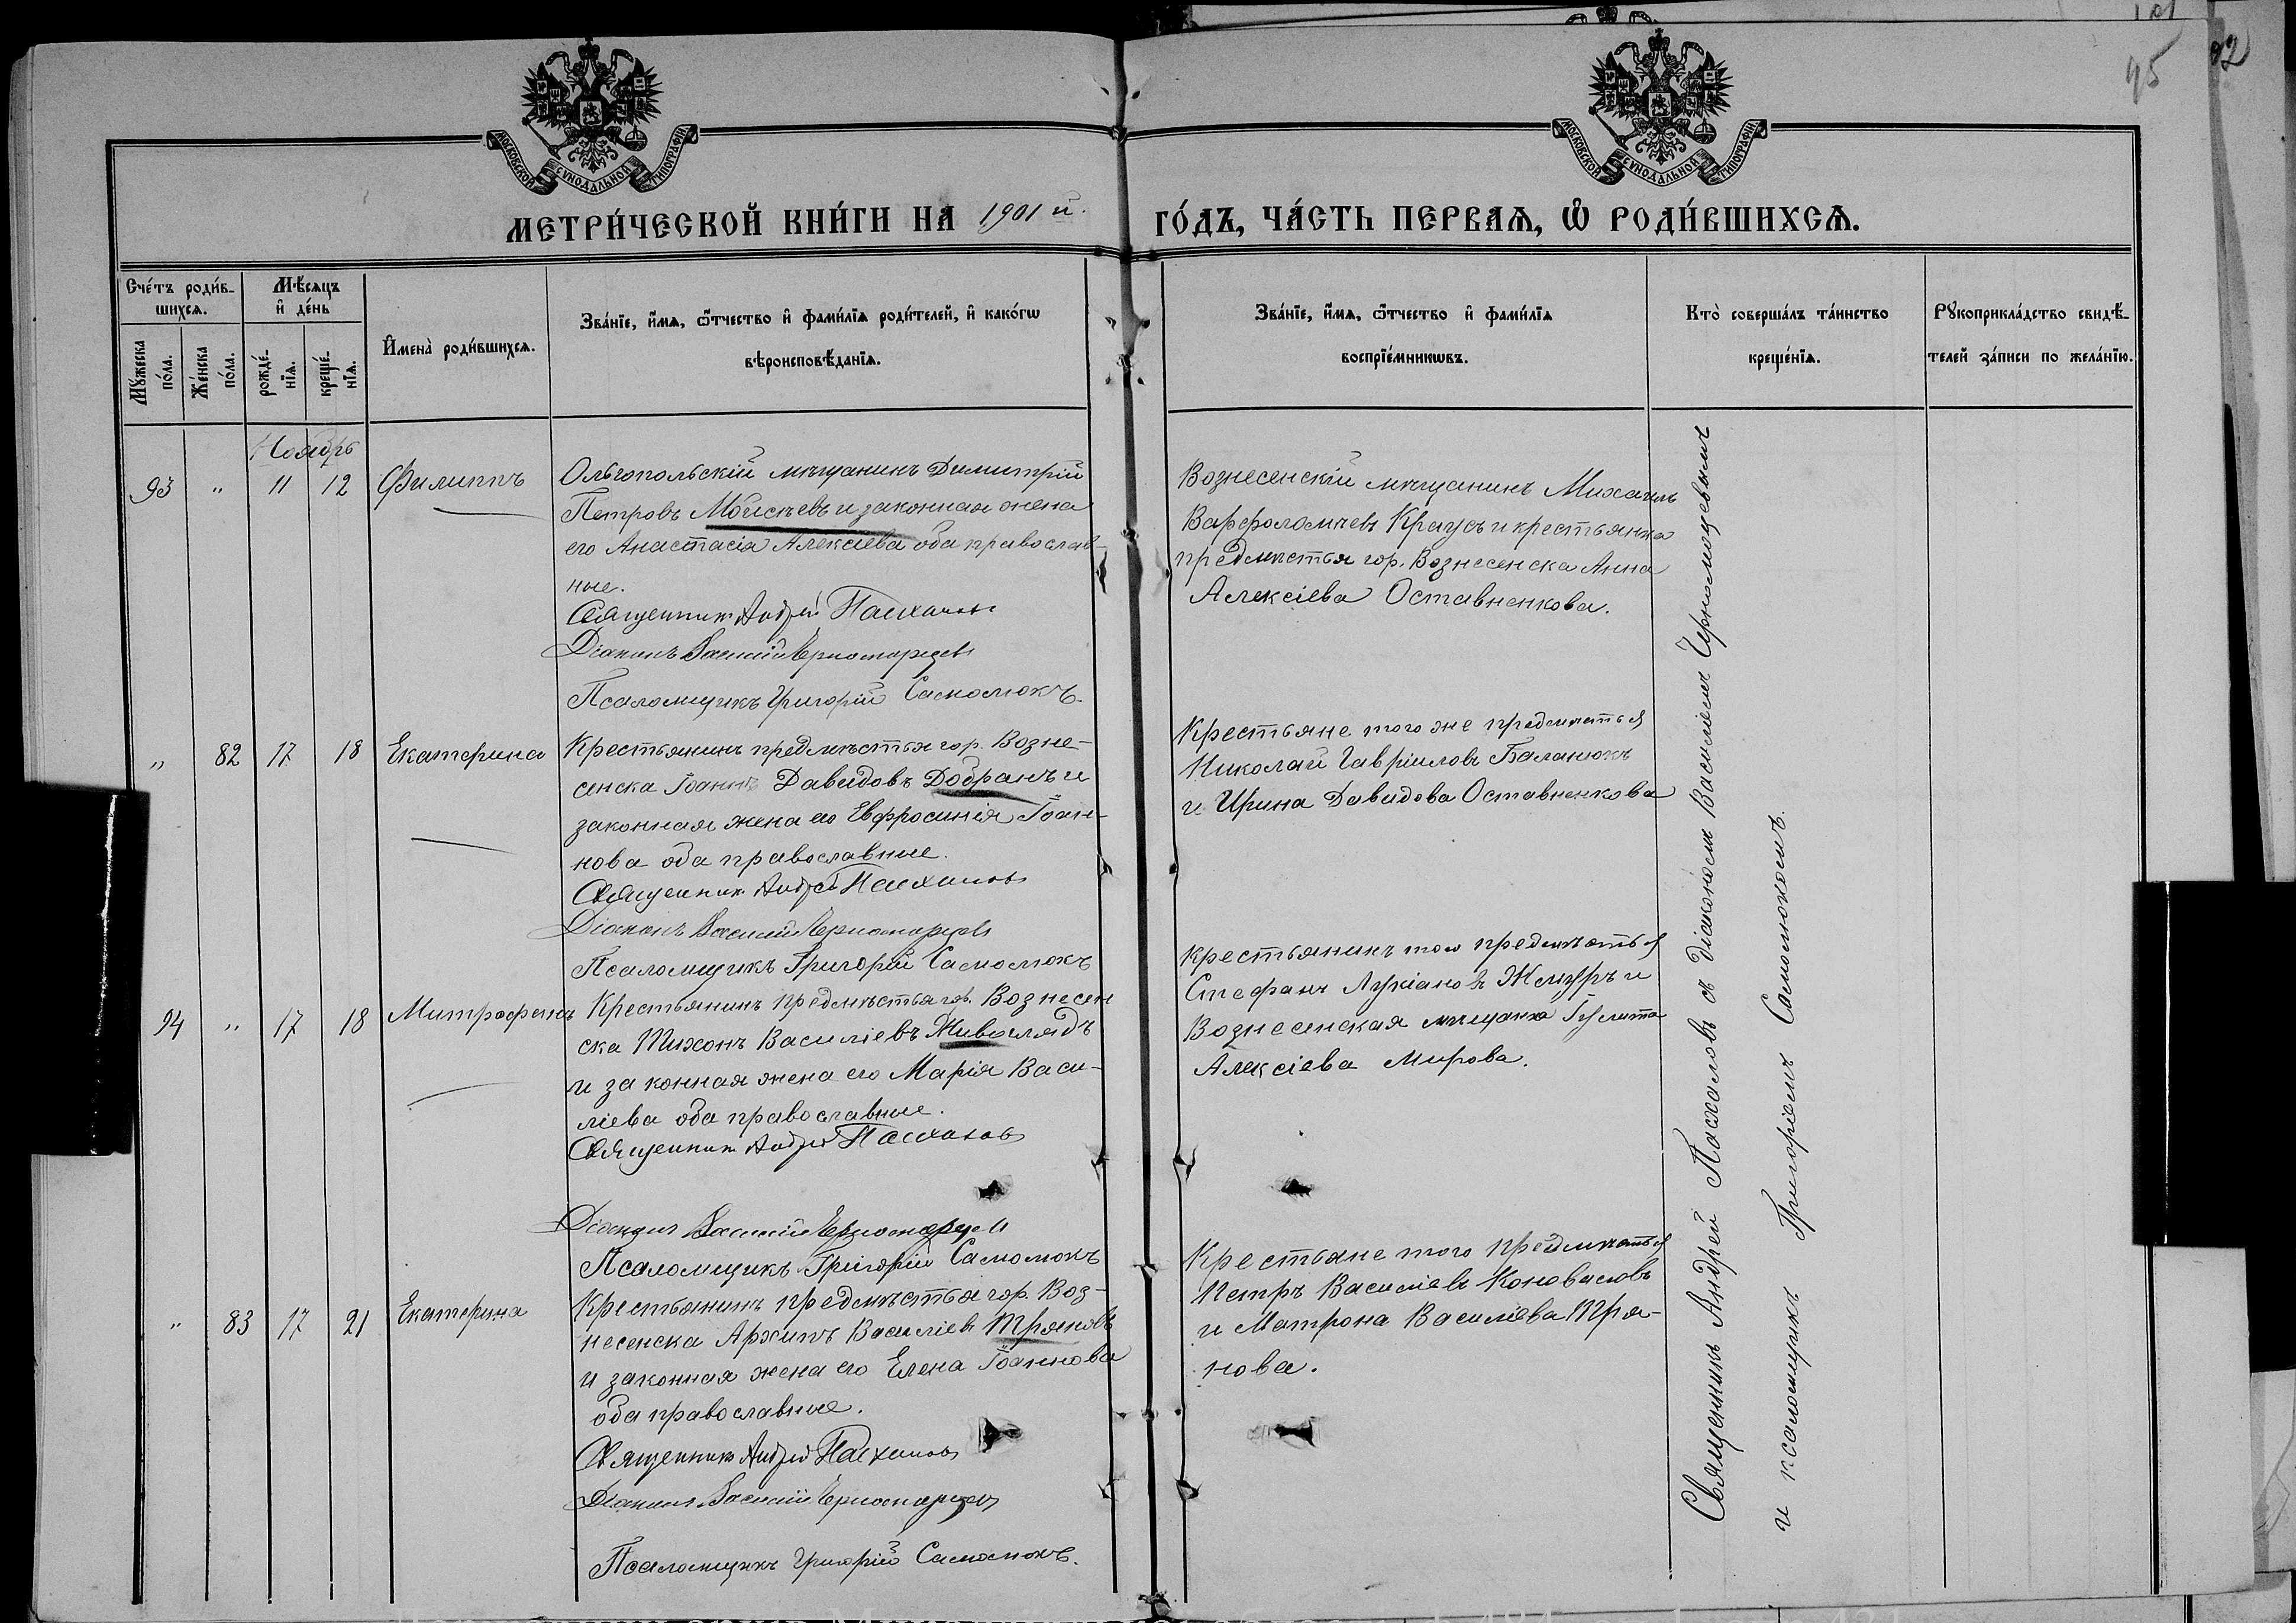 МОСКОВСКОЙ СУНОДАЛЬНОЙ ТИПОГРАФІИ
МОСКОВСКОЙ СУНОДАЛЬНОЙ ТИПОГРАФІИ
95
МЕТРИ́ЧЕСКОЙ КНИ́ГИ НА 1901 й. ГО́ДЪ, ЧА́СТЬ ПЕРВАѦ, Ѡ РОДИ́ВШИХСѦ.
Сче́тъ роди́в-
шихсѧ.
Мꙋ́жеска по́ла.
Же́нска по́ла.
Мѣ́сѧцъ
и҆ де́нь
рожде́-нїѧ.
креще́-нїѧ.
И҆мена̀ роди́вшихсѧ.
Зва́нїе, и҆́мѧ, ѻ҆́тчество и҆ фами́лїѧ роди́телей, и҆ како́гѡ
вѣроисповѣ́данїѧ.
Зва́нїе, и҆́мѧ, ѻ҆́тчество и҆ фами́лїѧ
воспрїе́мникѡвъ.
Кто̀ соверша́лъ та́инство
креще́нїѧ.
Рꙋкоприкла́дство свидѣ́-
телей за́писи по жела́нїю.
Ноябрь
93 " 11 12 Филиппъ
Ольгопольскій мѣщанинъ Димитрій
Петровъ Моисѣевъ и законная жена
его Анастасія Алексіева оба православ-
ные.
Священникъ Андрей Пасхаловъ
Діаконъ Василій Черноморцевъ
Псаломщикъ Григорій Самолюкъ.
Вознесенскій мѣщанинъ Михаилъ
Варфоломеевъ Краусъ и крестьянка
предмѣстья гор. Вознесенска Анна
Алексіева Оставненкова.
" 82 17 18 Екатерина
Крестьянинъ предмѣстья гор. Возне-
сенска Іоаннъ Давидовъ Добранъ и
законная жена его Евфросинія Іоан-
нова оба православные.
Священникъ Андрей Пасхаловъ
Діаконъ Василій Черноморцевъ
Псаломщикъ Григорій Самолюкъ
Крестьяне того же предмѣстья
Николай Гавріиловъ Баланюкъ
и Ирина Давидова Оставненкова
94 " 17 18 Митрофанъ
Крестьянинъ предмѣстья гор. Вознесен
ска Тихонъ Василіевъ Живоглядъ
и законная жена его Марія Васи-
ліева оба православные.
Священникъ Андрей Пасхаловъ
Діаконъ Василій Черноморцевъ
Псаломщикъ Григорій Самолюкъ
Крестьянинъ того предмѣстья
Стефанъ Лукіановъ Жмуръ и
Вознесенская мѣщанка
Алексіева Мирова.
" 83 17 21 Екатерина
Крестьянинъ предмѣстья гор. Воз-
несенска Архипъ Василіевъ Трян овъ
и законная жена его Елена Іоаннова
оба православные.
Священникъ Андрей Пасхаловъ
Діаконъ Василій Черноморцевъ
Псаломщикъ Григорій Самолюкъ.
Крестьяне того предмѣстья
Петръ Василіевъ Коноваловъ
и Матрона Василіева Тря-
нова.
Священникъ Андрей Пасхаловъ съ діакономъ Василіемъ Черноморцевымъ
и псаломщикъ Григоріемъ Самолюкомъ.